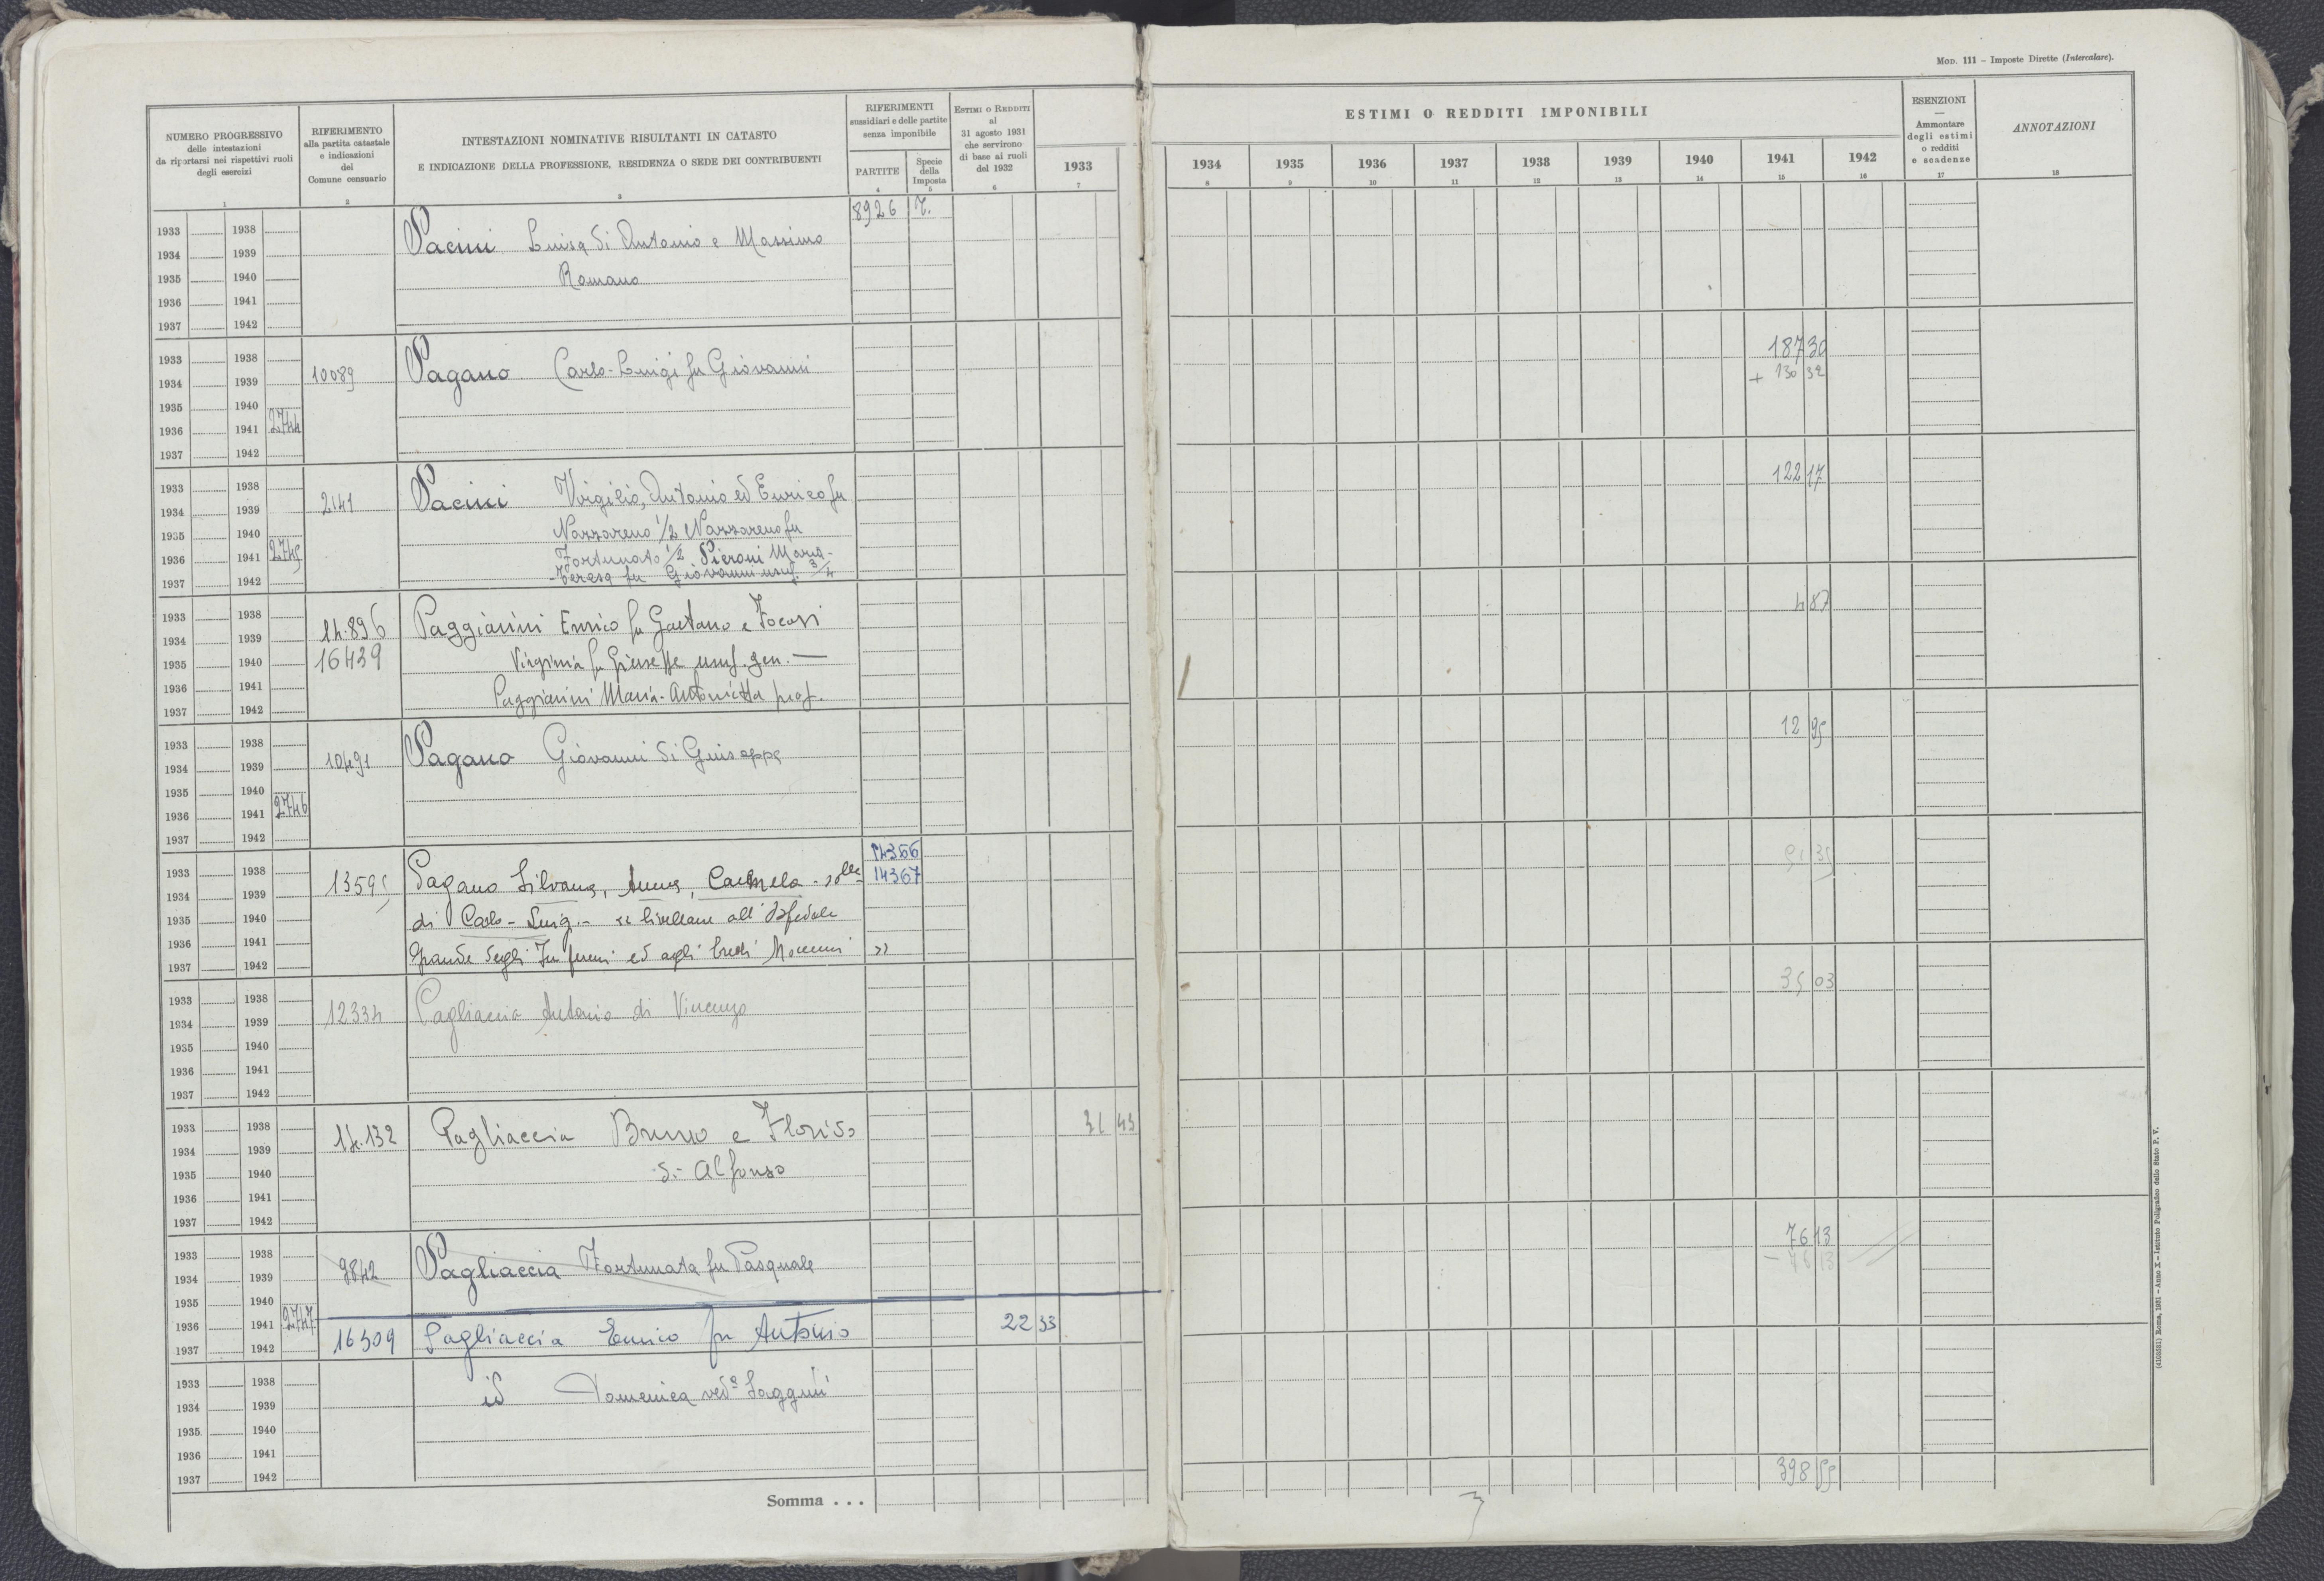 MOD. 111 – Imposte Dirette (Intercalare).
NUMERO PROGRESSIVO
delle intestazioni
da riportarsi nei rispettivi ruoli
degli esercizi
1
RIFERIMENTO
alla partita catastale
e indicazioni
del
Comune censuario
2
INTESTAZIONI NOMINATIVE RISULTANTI IN CATASTO
E INDICAZIONE DELLA PROFESSIONE, RESIDENZA O SEDE DEI CONTRIBUENTI
3
RIFERIMENTI
sussidiari e delle partite
senza imponibile
PARTITE
4
Specie
della
Imposta
5
ESTIMI O REDDITI
al
31 agosto 1931
che servirono
di base ai ruoli
del 1932
6
ESTIMI O REDDITI IMPONIBILI
1933
7
1934
8
1935
9
1936
10
1937
11
1938
12
1939
13
1940
14
1941
15
1942
16
ESENZIONI
—
Ammontare
degli estimi
o redditi
e scadenze
17
ANNOTAZIONI
18
8926
1933 1938
Pacini Luisa di Antonio e Massimo
1934 1939
Romano
1935 1940
1936 1941
1937 1942
187 30
1933 1938
10089 Pagano Carlo-Luigi fu Giovanni
+ 130 32
1934 1939
1935 1940
1936 1941 2744
1937 1942
122 17
1933 1938
2141 Pacini Virgilio, Antonio ed Enrico fu
1934 1939
Nazzareno 1/2 Nazzareno fu
1935 1940
Fortunato 1/2 Pieroni Maria-
1936 1941 2745
Teresa fu Giovanni usuf. 3/4
1937 1942
4 87
1933 1938
14.896 Paggianini Enrico fu Gaetano e Focosi
1934 1939
16439 Virginia fu Giuseppe usuf. gen. —
1935 1940
Paggianini Maria-Antonietta prop.
1936 1941
1937 1942
12 95
1933 1938
10491 Pagano Giovanni di Giuseppe
1934 1939
1935 1940
1936 1941 2746
1937 1942
14366
14367
1933 1938
Pagano Silvana, Anna, Carmela - solle
1934 1939
di Carlo-Luigi - livellare all'Ospedale
1935 1940
Grande degli Infermi ed agli Eredi
1936 1941
1937 1942
35 03
1933 1938
12334 Pagliaccia Antonio di Vincenzo
1934 1939
1935 1940
1936 1941
1937 1942
1933 1938
14.132 Pagliaccia Bruno e Florido
31 43
1934 1939
di Alfonso
1935 1940
1936 1941
1937 1942
76 13
1933 1938
9842 Pagliaccia Fortunata fu Pasquale
– 76 13
1934 1939
1935 1940
1936 1941 2747
16509 Pagliaccia Enrico fu Antonio 22 33
1937 1942
1933 1938
id Domenica ved.
1934 1939
1935 1940
1936 1941
1937 1942
398
Somma . . .
(4103531) Roma, 1931 – Anno X – Istituto Poligrafico dello Stato P. V.